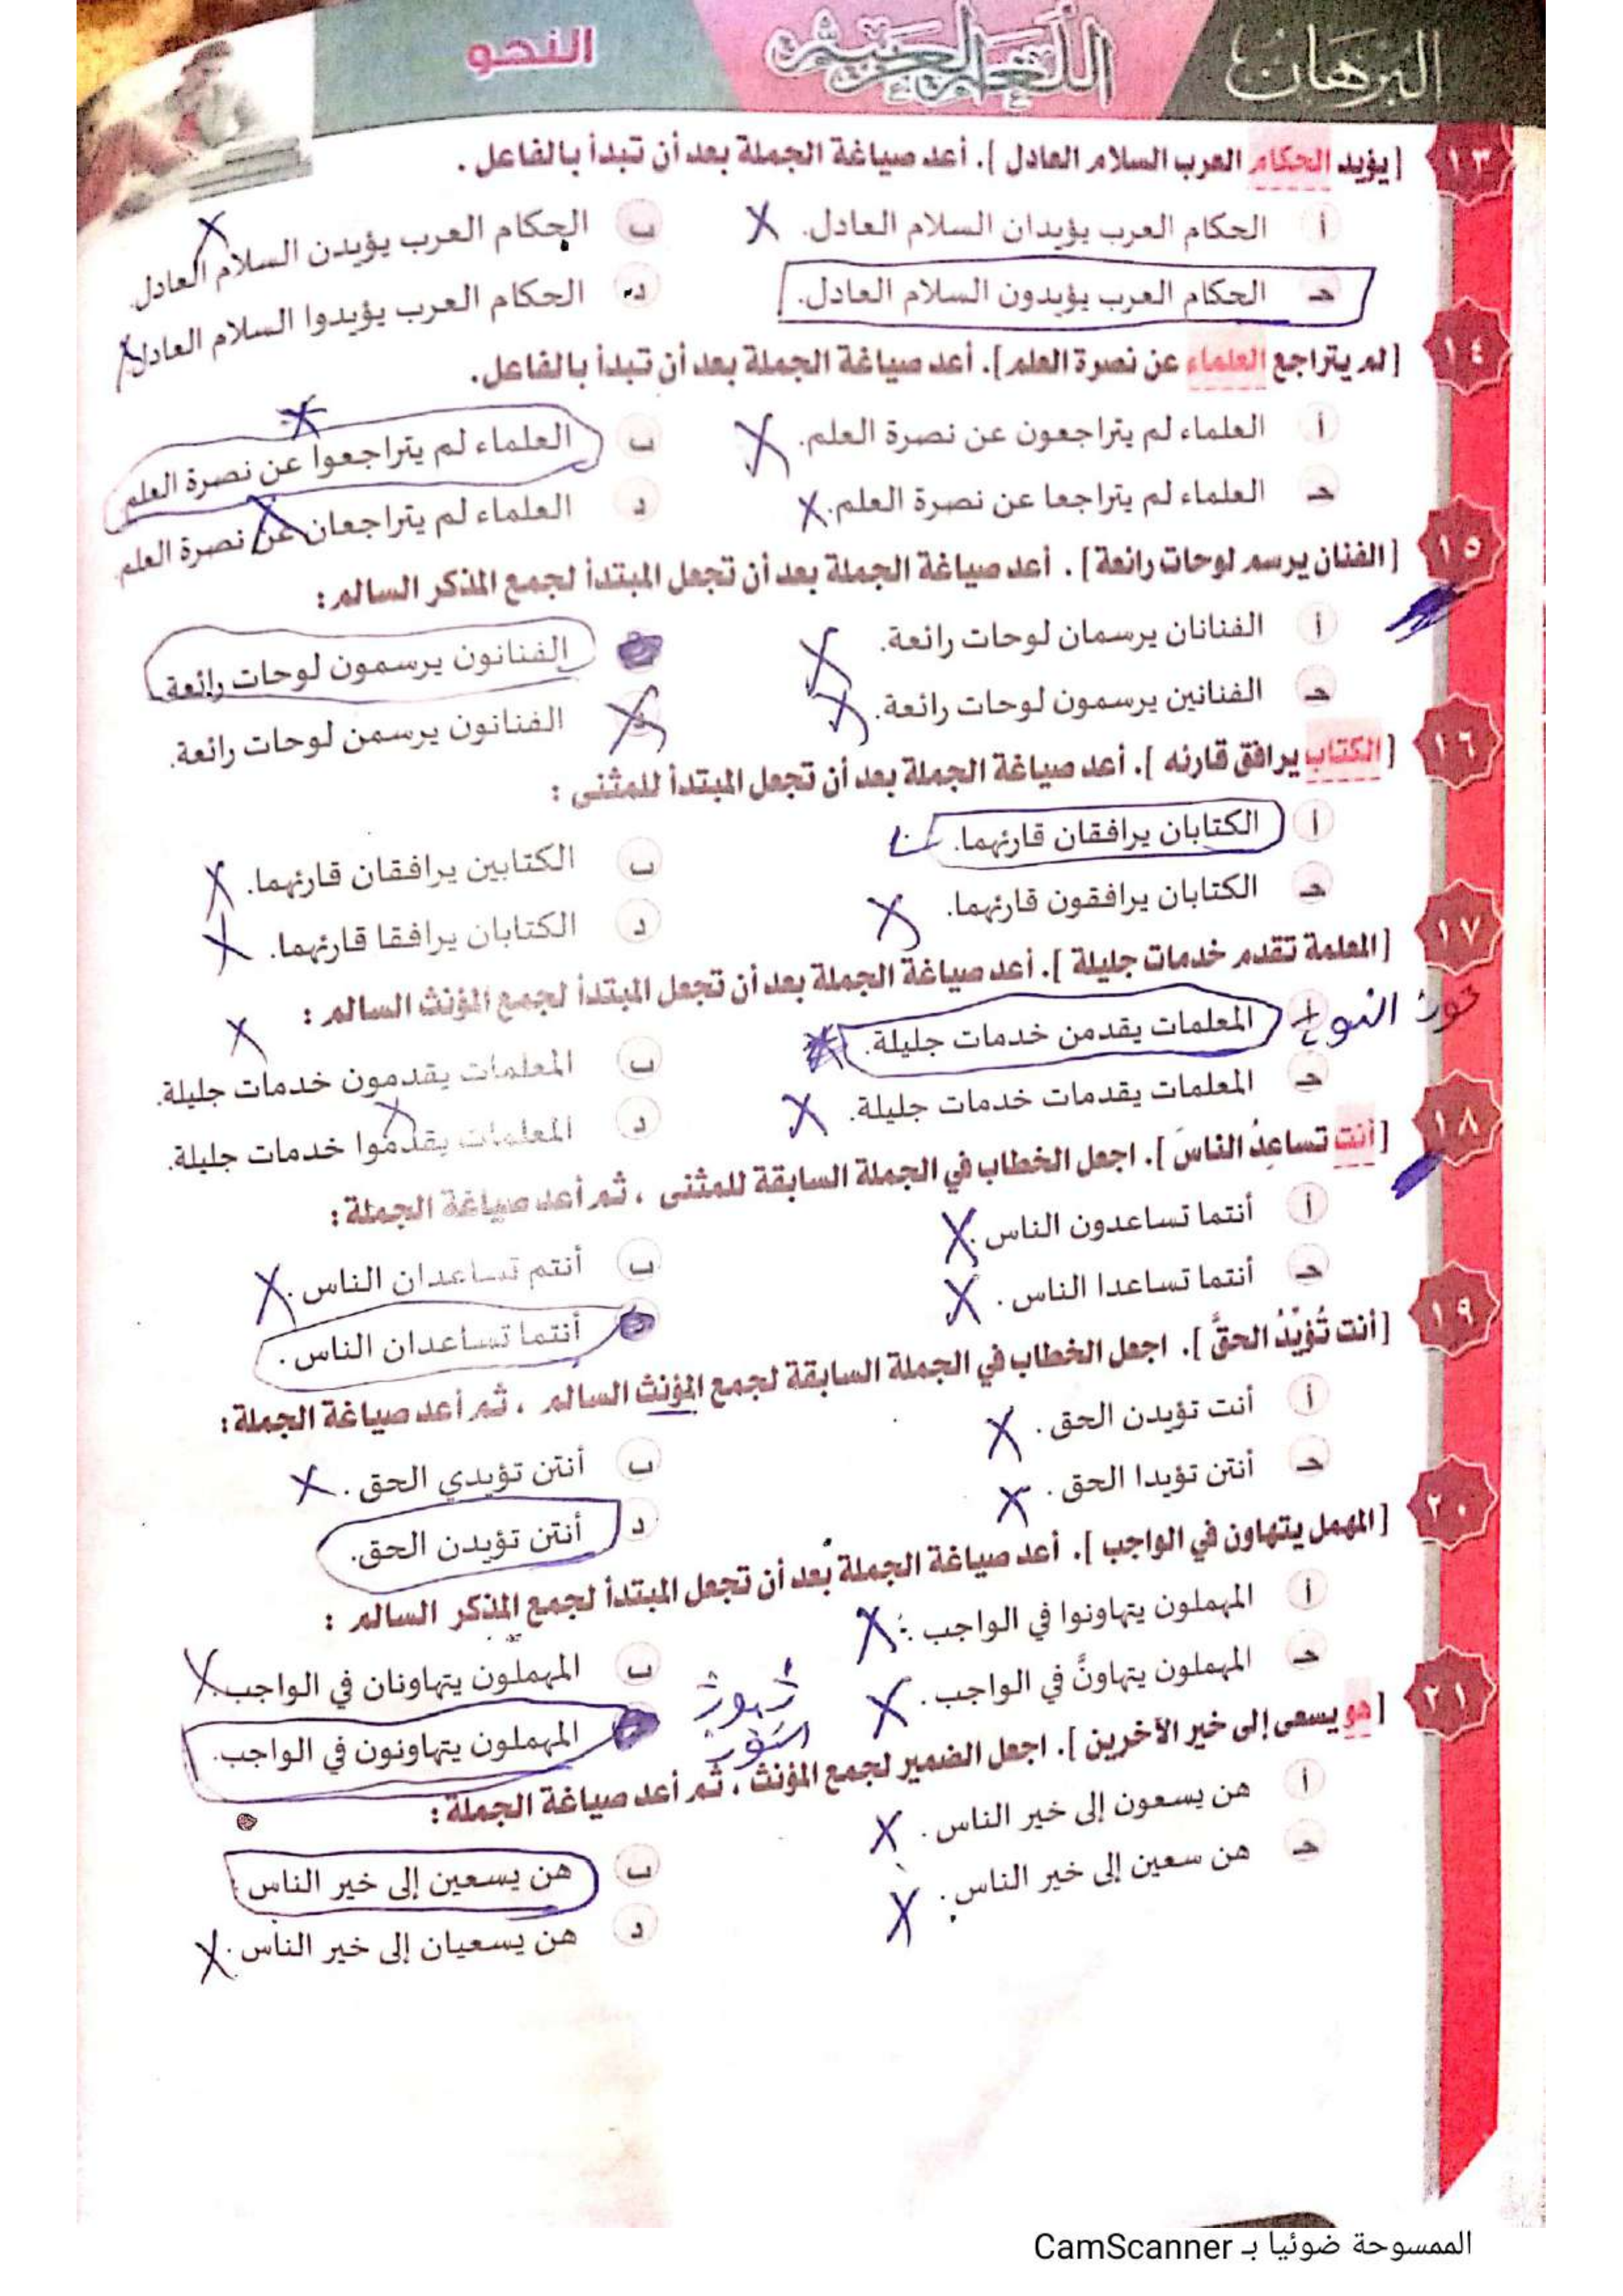 البرهان اللغة العربية النحو
١٣ [ يؤيد الحكام العرب السلام العادل ]. أعد صياغة الجملة بعد أن تبدأ بالفاعل .
أ الحكام العرب يؤيدان السلام العادل. ب الحكام العرب يؤيدن السلام العادل.
جـ الحكام العرب يؤيدون السلام العادل. د الحكام العرب يؤيدوا السلام العادل.
١٤ [ لم يتراجع العلماء عن نصرة العلم ]. أعد صياغة الجملة بعد أن تبدأ بالفاعل.
أ العلماء لم يتراجعون عن نصرة العلم. ب العلماء لم يتراجعوا عن نصرة العلم
جـ العلماء لم يتراجعا عن نصرة العلم. د العلماء لم يتراجعان عن نصرة العلم.
١٥ [ الفنان يرسم لوحات رائعة ] . أعد صياغة الجملة بعد أن تجعل المبتدأ لجمع المذكر السالم :
أ الفنانان يرسمان لوحات رائعة. الفنانون يرسمون لوحات رائعة.
جـ الفنانين يرسمون لوحات رائعة. الفنانون يرسمن لوحات رائعة.
١٦ [ الكتاب يرافق قارئه ]. أعد صياغة الجملة بعد أن تجعل المبتدأ للمثنى :
أ الكتابان يرافقان قارئهما. ب الكتابين يرافقان قارئهما.
جـ الكتابان يرافقون قارئهما. د الكتابان يرافقا قارئهما.
١٧ [ المعلمة تقدم خدمات جليلة ]. أعد صياغة الجملة بعد أن تجعل المبتدأ لجمع المؤنث السالم :
النوع
أ المعلمات يقدمن خدمات جليلة. ب المعلمات يقدمون خدمات جليلة.
جـ المعلمات يقدمات خدمات جليلة. د المعلمات يقدموا خدمات جليلة.
١٨ [ أنت تساعِدُ الناسَ ]. اجعل الخطاب في الجملة السابقة للمثنى ، ثم أعد صياغة الجملة :
أ أنتما تساعدون الناس . ب أنتم تساعدان الناس .
جـ أنتما تساعدا الناس . أنتما تساعدان الناس .
١٩ [ أنت تُؤيِّدُ الحقَّ ]. اجعل الخطاب في الجملة السابقة لجمع المؤنث السالم ، ثم أعد صياغة الجملة :
أ أنت تؤيدن الحق . ب أنتن تؤيدي الحق .
جـ أنتن تؤيدا الحق . د أنتن تؤيدن الحق.
٢٠ [ المهمل يتهاون في الواجب ]. أعد صياغة الجملة بعد أن تجعل المبتدأ لجمع المذكر السالم :
أ المهملون يتهاونوا في الواجب . ب المهملون يتهاونان في الواجب.
جـ المهملون يتهاونَّ في الواجب . المهملون يتهاونون في الواجب.
٢١ [ هو يسعى إلى خير الآخرين ]. اجعل الضمير لجمع المؤنث ، ثم أعد صياغة الجملة :
أ هن يسعون إلى خير الناس . ب هن يسعين إلى خير الناس
جـ هن سعين إلى خير الناس . د هن يسعيان إلى خير الناس .
الممسوحة ضوئيا بـ CamScanner